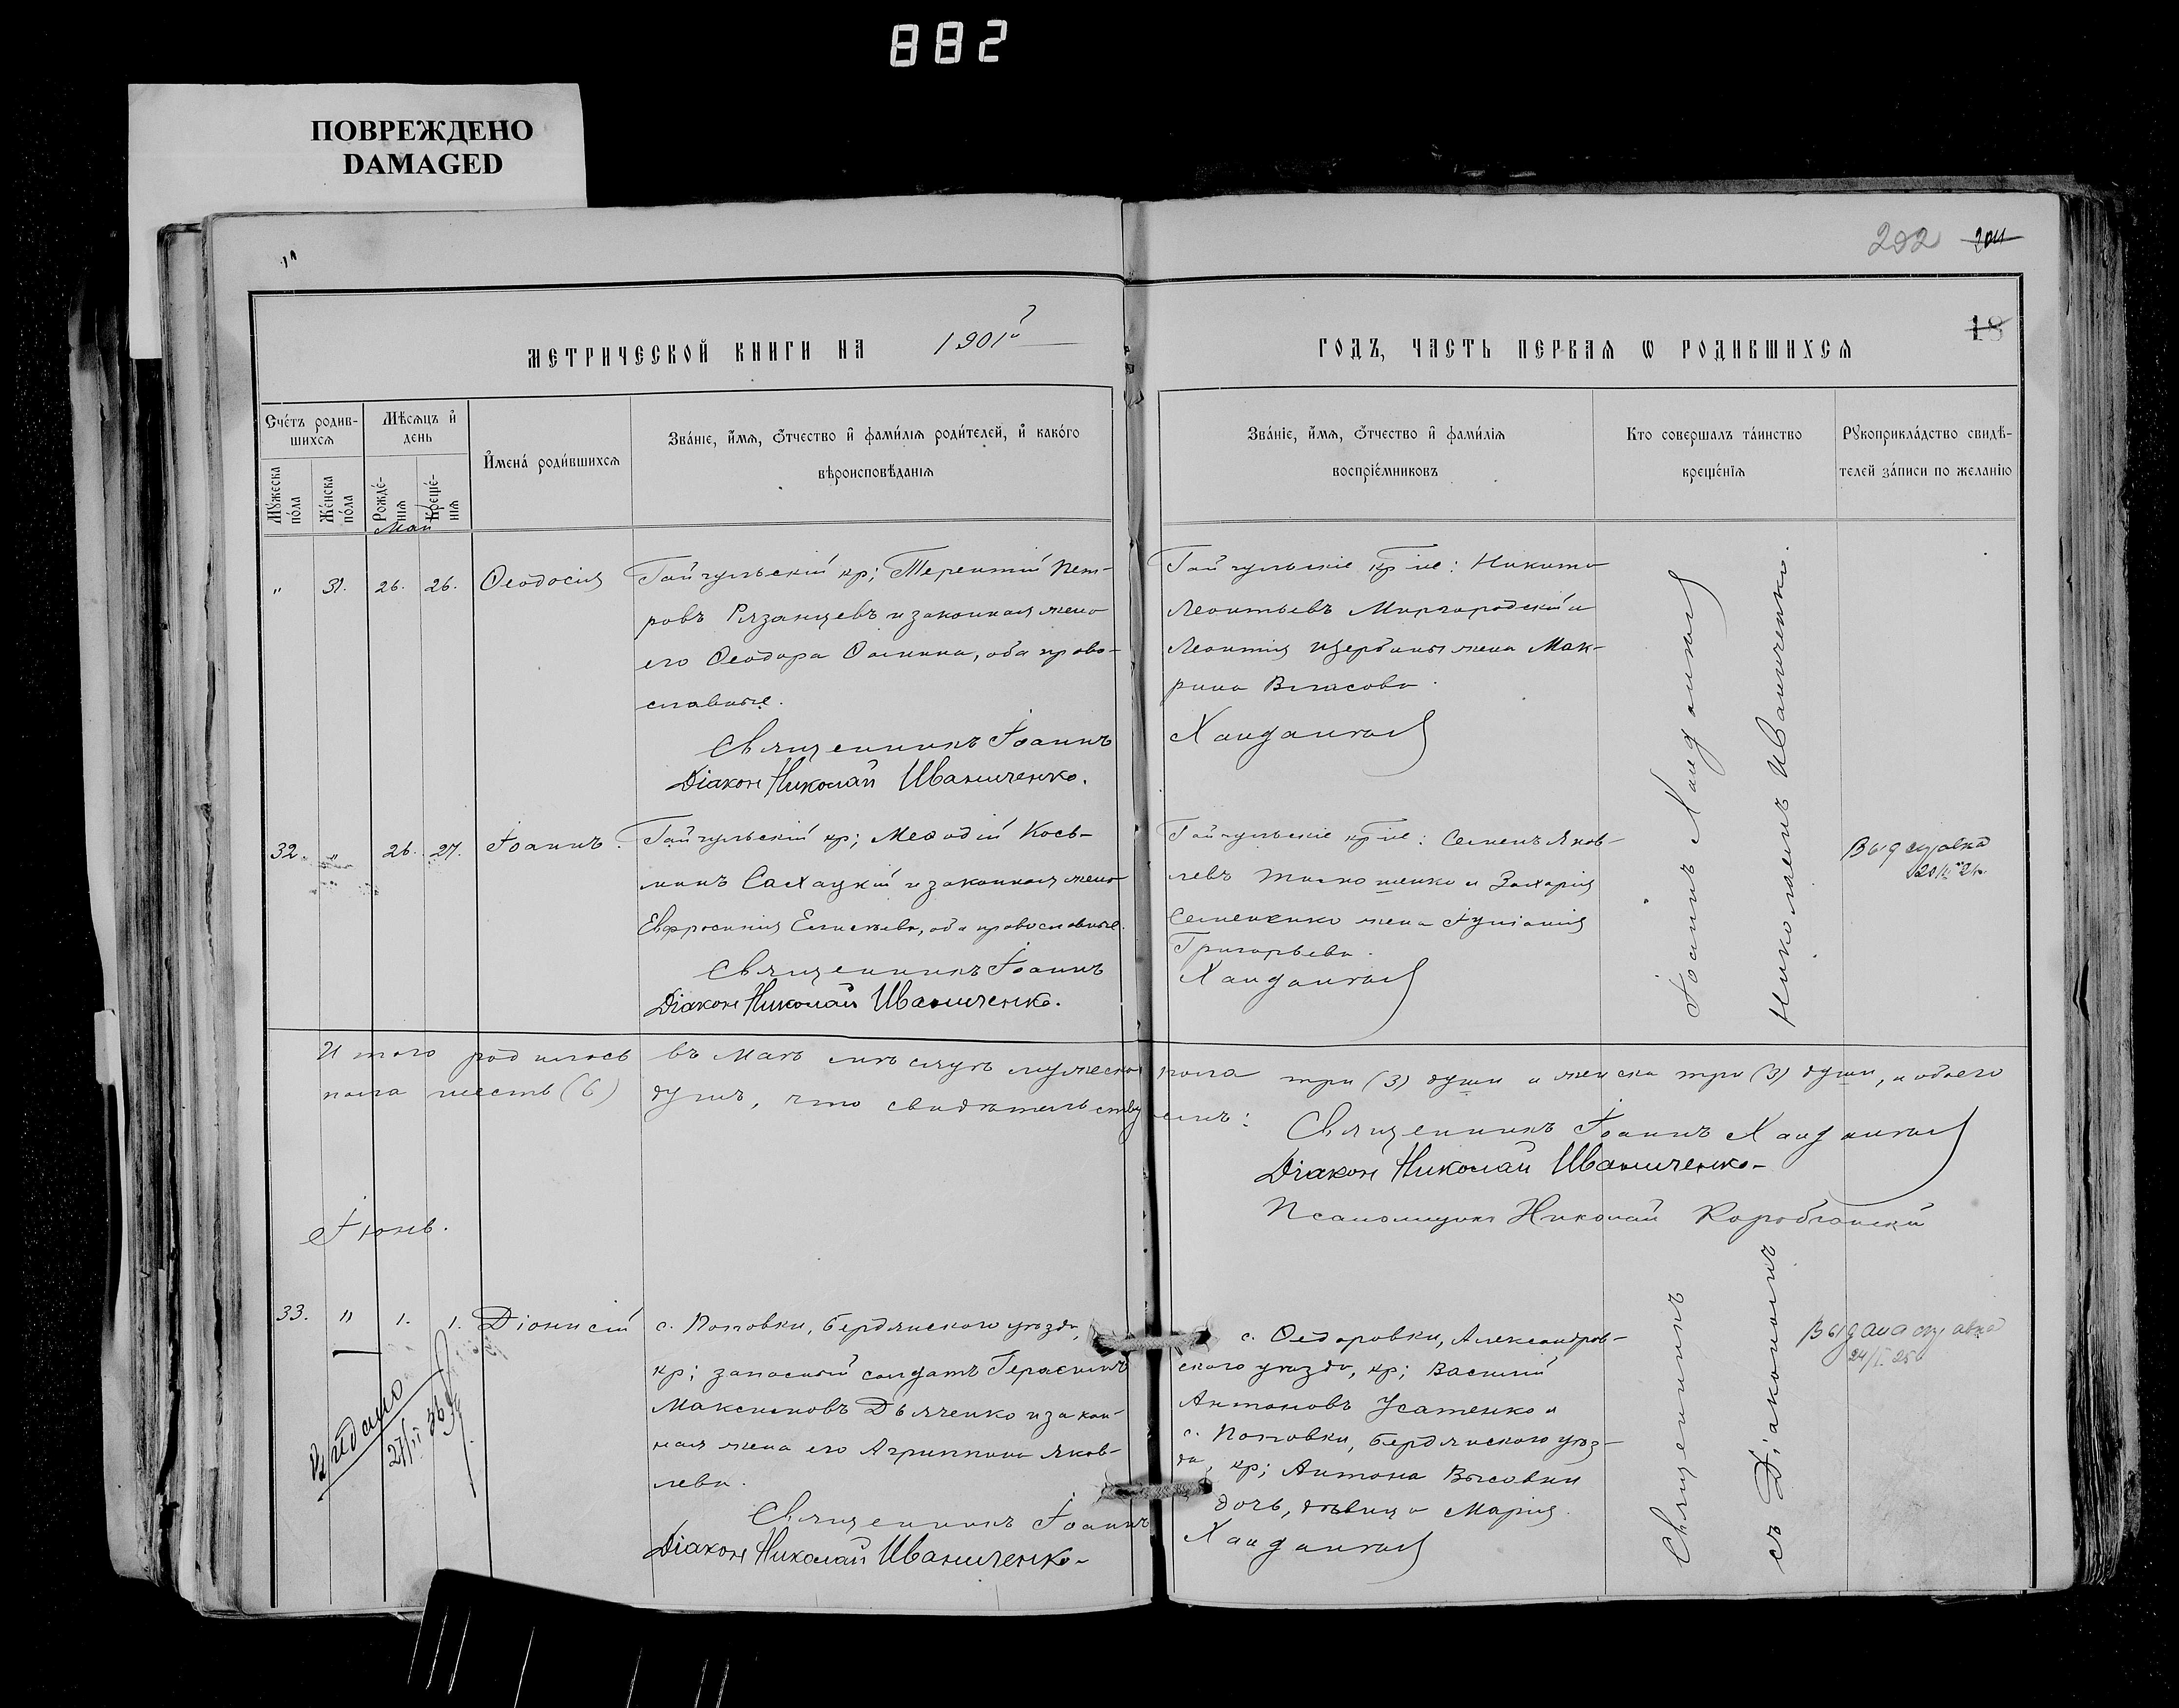 882
ПОВРЕЖДЕНО
DAMAGED
202 201
18
МЕТРИЧЕСКОЙ КНИГИ НА 1901й
ГОДЪ, ЧАСТЬ ПЕРВАЯ Ѡ РОДИВШИХСЯ
Счетъ родив-
шихся
Мужеска пола
Женска пола
Мѣсяцъ и
день
Рожде-
нія
Креще-
нія
Имена родившихся
Званіе, имя, отчество и фамилія родителей, и какого
вѣроисповѣданія
Званіе, имя, отчество и фамилія
воспріемниковъ
Кто совершалъ таинство
крещенія
Рукоприкладство свидѣ-
телей записи по желанію
Май
" 31. 26. 26. Ѳеодосія
Гайчульскій кр; Терентій Пет-
ровъ Рязанцевъ и законная жена
его Ѳеодора Ѳомина, оба право-
славные.
Священникъ Іоаннъ
Діаконъ Николай Иваниченко.
Гайчульскіе кр не: Никита
Леонтьевъ Миргородскій и
Леонтія Щербины жена Мак-
рина Власова.
Хандалій
32. " 26. 27. Іоаннъ.
Гайчульскій кр; Меѳодій Кось-
минъ Салхацкій и законная жена
Евфросинія Елисѣева, оба православные.
Священникъ Іоаннъ
Діаконъ Николай Иваниченко.
Гайчульскіе кр не: Семенъ Яков-
левъ и Захарія
Семененко жена Іуліанія
Григорьева.
Іоаннъ
Николаемъ Иваниченко.
Выд справка
Итого родилось въ Маѣ мѣсяцѣ мужеска пола три (3) души и женска три (3) души, и обоего
пола шесть (6) душъ, что свидѣтельствуемъ:
Священникъ Іоаннъ
Діаконъ Николай Иваниченко
Псаломщикъ Николай
Іюнь.
33. " 1. 1. Діонисій
с. Поповки, Бердянскаго уѣзда,
кр; запасный солдатъ Герасимъ
Максимовъ Дьяченко и закон-
ная жена его Агриппина Яков-
лева.
Священникъ Іоаннъ
Діаконъ Николай Иваниченко
с. Ѳедоровки, Александров-
скаго уѣзда, кр; Василій
Антоновъ Усатенко и
с. Поповки, Бердянскаго уѣз-
да, кр; Антона Высовки
дочь, дѣвица Марія.
Священникъ
съ Діакономъ
Выдана справка
24/I 25
Выдано